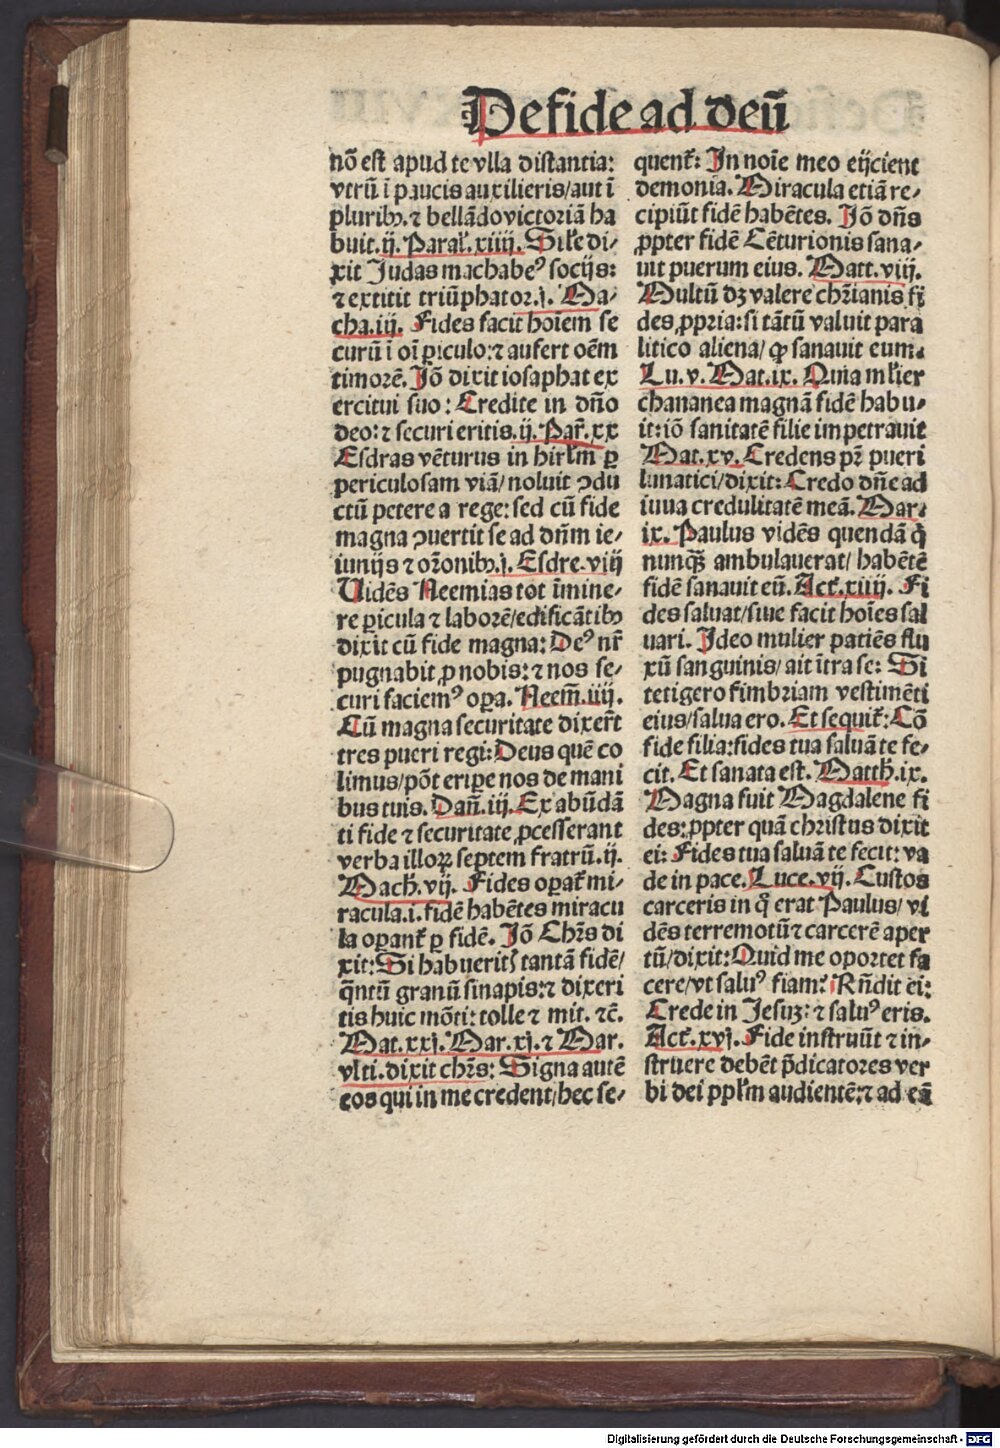 De fide ad deũ
nõ est apud te vlla distantia:
vtrũ ĩ paucis auxilieris/aut ĩ
pluribꝰ. ⁊ bellãdo victoriã ha
buit. ij. Paral. xiiij. Sil'e di-
xit Judas machabeꝰ socijs:
⁊ extitit triũphator. j. Ma-
cha. iij. Fides facit hoĩem se
curũ ĩ oĩ ꝑiculo: ⁊ aufert oẽm
timorẽ. Jõ dixit iosaphat ex
ercitui suo: Credite in dño
deo: ⁊ securi eritis. ij. Par̃. xx
Esdras vẽturus in hirl'm ꝑ
periculosam viã/ noluit ꝯdu
ctũ petere a rege: sed cũ fide
magna ꝯuertit se ad dñm ie-
iunijs ⁊ oꝛ̃onibꝰ. j. Esdre. viij
Uidẽs Neemias tot ĩmine-
re ꝑicula ⁊ laborẽ/edificãtibꝰ
dixit cũ fide magna: Deꝰ nr̃
pugnabit ꝓ nobis: ⁊ nos se-
curi faciemꝰ oꝑa. Neem̃. iiij.
Cũ magna securitate dixer̃t
tres pueri regi: Deus quẽ co
limus/põt eriꝑe nos de mani
bus tuis. Dañ. iij. Ex abũdã
ti fide ⁊ securitate ꝓcesserant
verba illoꝝ septem fratrũ. ij.
Mach. vij. Fides oꝑat̃ mi-
racula. i. fidẽ habẽtes miracu
la oꝑant̃ ꝑ fidẽ. Jõ Chr̃s di
xit: Si habueritis tantã fidẽ/
q̃ntũ granũ sinapis: ⁊ dixeri
tis huic mõti: tolle ⁊ mit. ⁊c̃.
Mat. xxj. Mar. xj. ⁊ Mar.
vlti. dixit chr̃s: Signa autẽ
eos qui in me credent/hec se-
quent̃: In noĩe meo eijcient
demonia. Miracula etiã re-
cipiũt fidẽ habẽtes. Jõ dñs
ꝓpter fidẽ Cẽturionis sana-
uit puerum eius. Matt. viij.
Multũ dꝫ valere chr̃ianis fi
des ꝓpria: si tãtũ valuit para
litico aliena/ ꝙ sanauit eum.
Lu. v. Mat. ix. Quia ml'ier
chananea magnã fidẽ habu-
it: iõ sanitatẽ filie impetrauit
Mat. xv. Credens pr̃ pueri
lunatici/dixit: Credo dñe ad
iuua credulitatẽ meã. Mar.
ix. Paulus vidẽs quendã q̃
nunq̃ ambulauerat/ habẽtẽ
fidẽ sanauit eũ. Act̃. xiiij. Fi
des saluat/siue facit hoĩes sal
uari. Ideo mulier patiẽs flu
xũ sanguinis/ ait ĩtra se: Si
tetigero fimbriam vestimẽti
eius/salua ero. Et sequit̃: Cõ
fide filia: fides tua saluã te fe-
cit. Et sanata est. Matth. ix.
Magna fuit Magdalene fi
des: ꝓpter quã christus dixit
ei: Fides tua saluã te fecit: va
de in pace. Luce. vij. Custos
carceris in q̃ erat Paulus/ vi
dẽs terremotũ ⁊ carcerẽ aper
tũ/dixit: Quid me oportet fa
cere/vt saluꝰ fiam? Rñdit ei:
Crede in Jesuꝫ: ⁊ saluꝰ eris.
Act̃. xvj. Fide instruũt ⁊ in-
struere debẽt p̃dicatores ver
bi dei ppl'm audientẽ: ⁊ ad eã
Digitalisierung gefördert durch die Deutsche Forschungsgemeinschaft - DFG